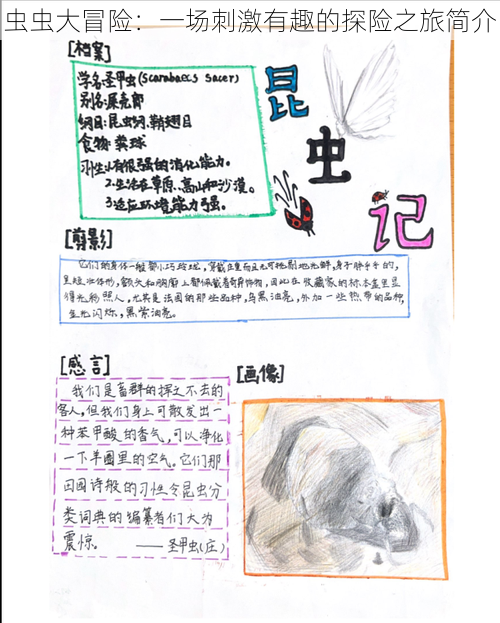 虫虫大冒险：一场刺激有趣的探险之旅简介
[档案]
学名:圣甲虫(Scarabaeus sacer)
别名:屎壳郎
纲目:昆虫纲、鞘翅目
食物:粪球
习性:1.有很强的消化能力。
2.生活在草原、高山和沙漠。
3.适应环境能力强。
昆
虫
记
[剪影]
它们的身体一般都小巧玲珑，穿戴庄重而且无可挑剔地光鲜，身子胖乎乎的，
呈短壮体形，额头和胸廓上都佩戴着奇异饰物，因此在收藏家的标本盒里显
得光彩照人，尤其是法国的那些品种，乌黑油亮，外加一些热带的品种，
金光闪烁，黑紫油亮。
[感言]
我们是畜群的挥之不去的
客人，但我们身上可散发出一
种苯甲酸的香气，可以净化
一下羊圈里的空气。它们那
田园诗般的习性令昆虫分
类词典的编纂者们大为
震惊。 ——圣甲虫(庄)
[画像]